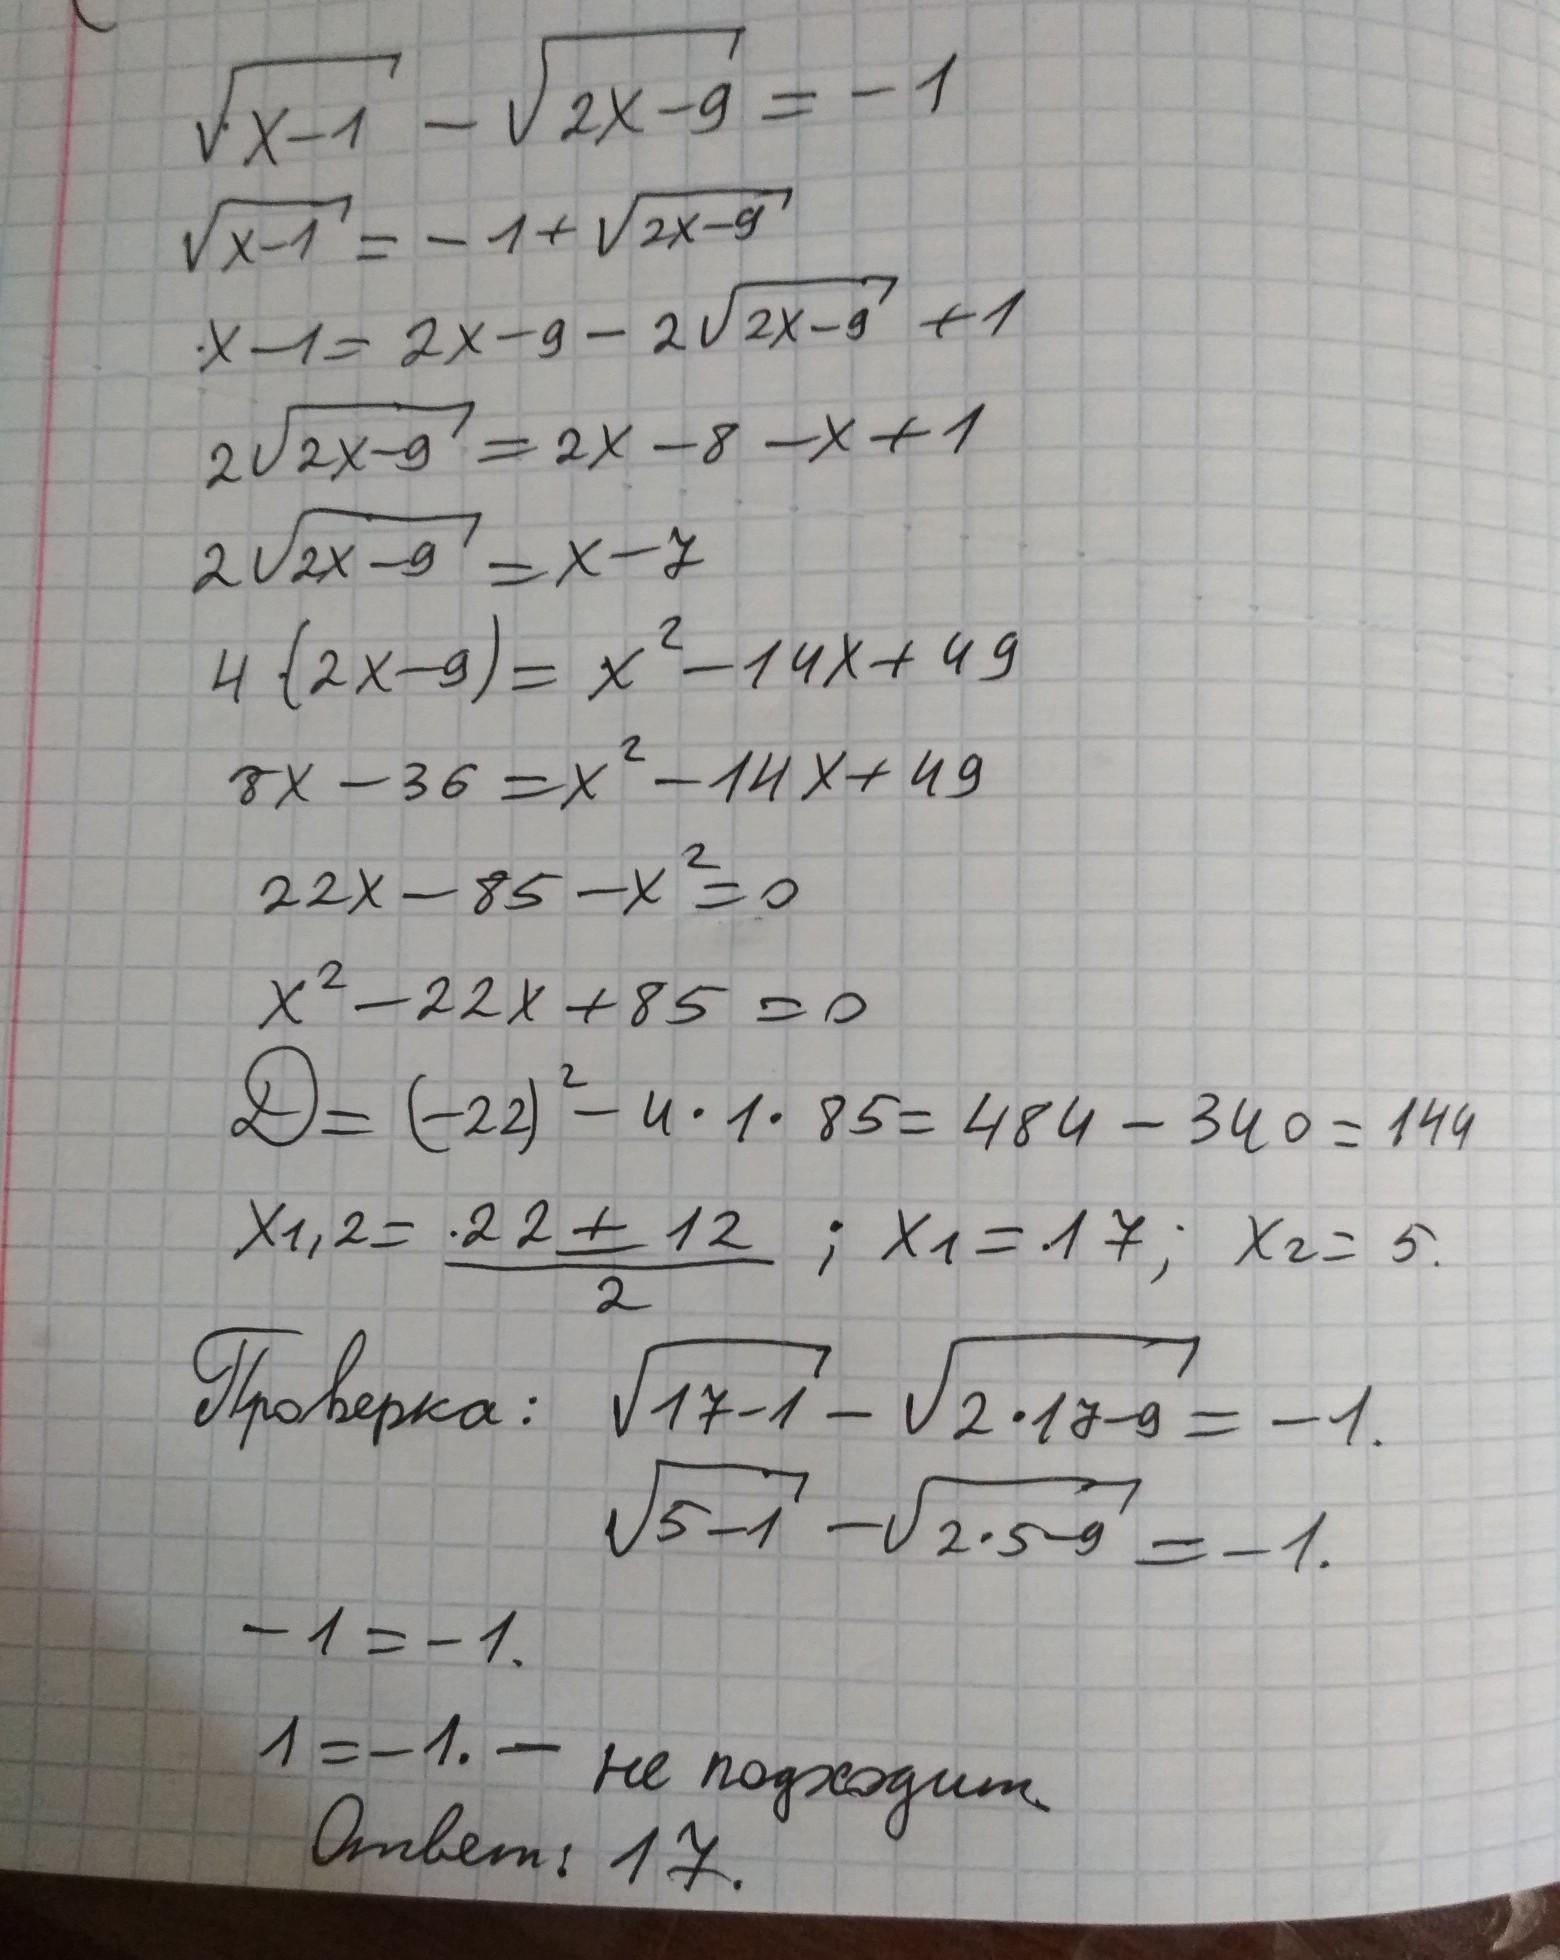 √(x-1) - √(2x-9) = -1
√(x-1) = -1 + √(2x-9)
x-1 = 2x-9 - 2√(2x-9) + 1
2√(2x-9) = 2x - 8 - x + 1
2√(2x-9) = x - 7
4(2x-9) = x² - 14x + 49
8x - 36 = x² - 14x + 49
22x - 85 - x² = 0
x² - 22x + 85 = 0
D = (-22)² - 4·1·85 = 484 - 340 = 144
x1,2 = (22 ± 12)/2 ; x1 = 17; x2 = 5.
Проверка: √(17-1) - √(2·17-9) = -1.
√(5-1) - √(2·5-9) = -1.
-1 = -1.
1 = -1. — не подходит.
Ответ: 17.